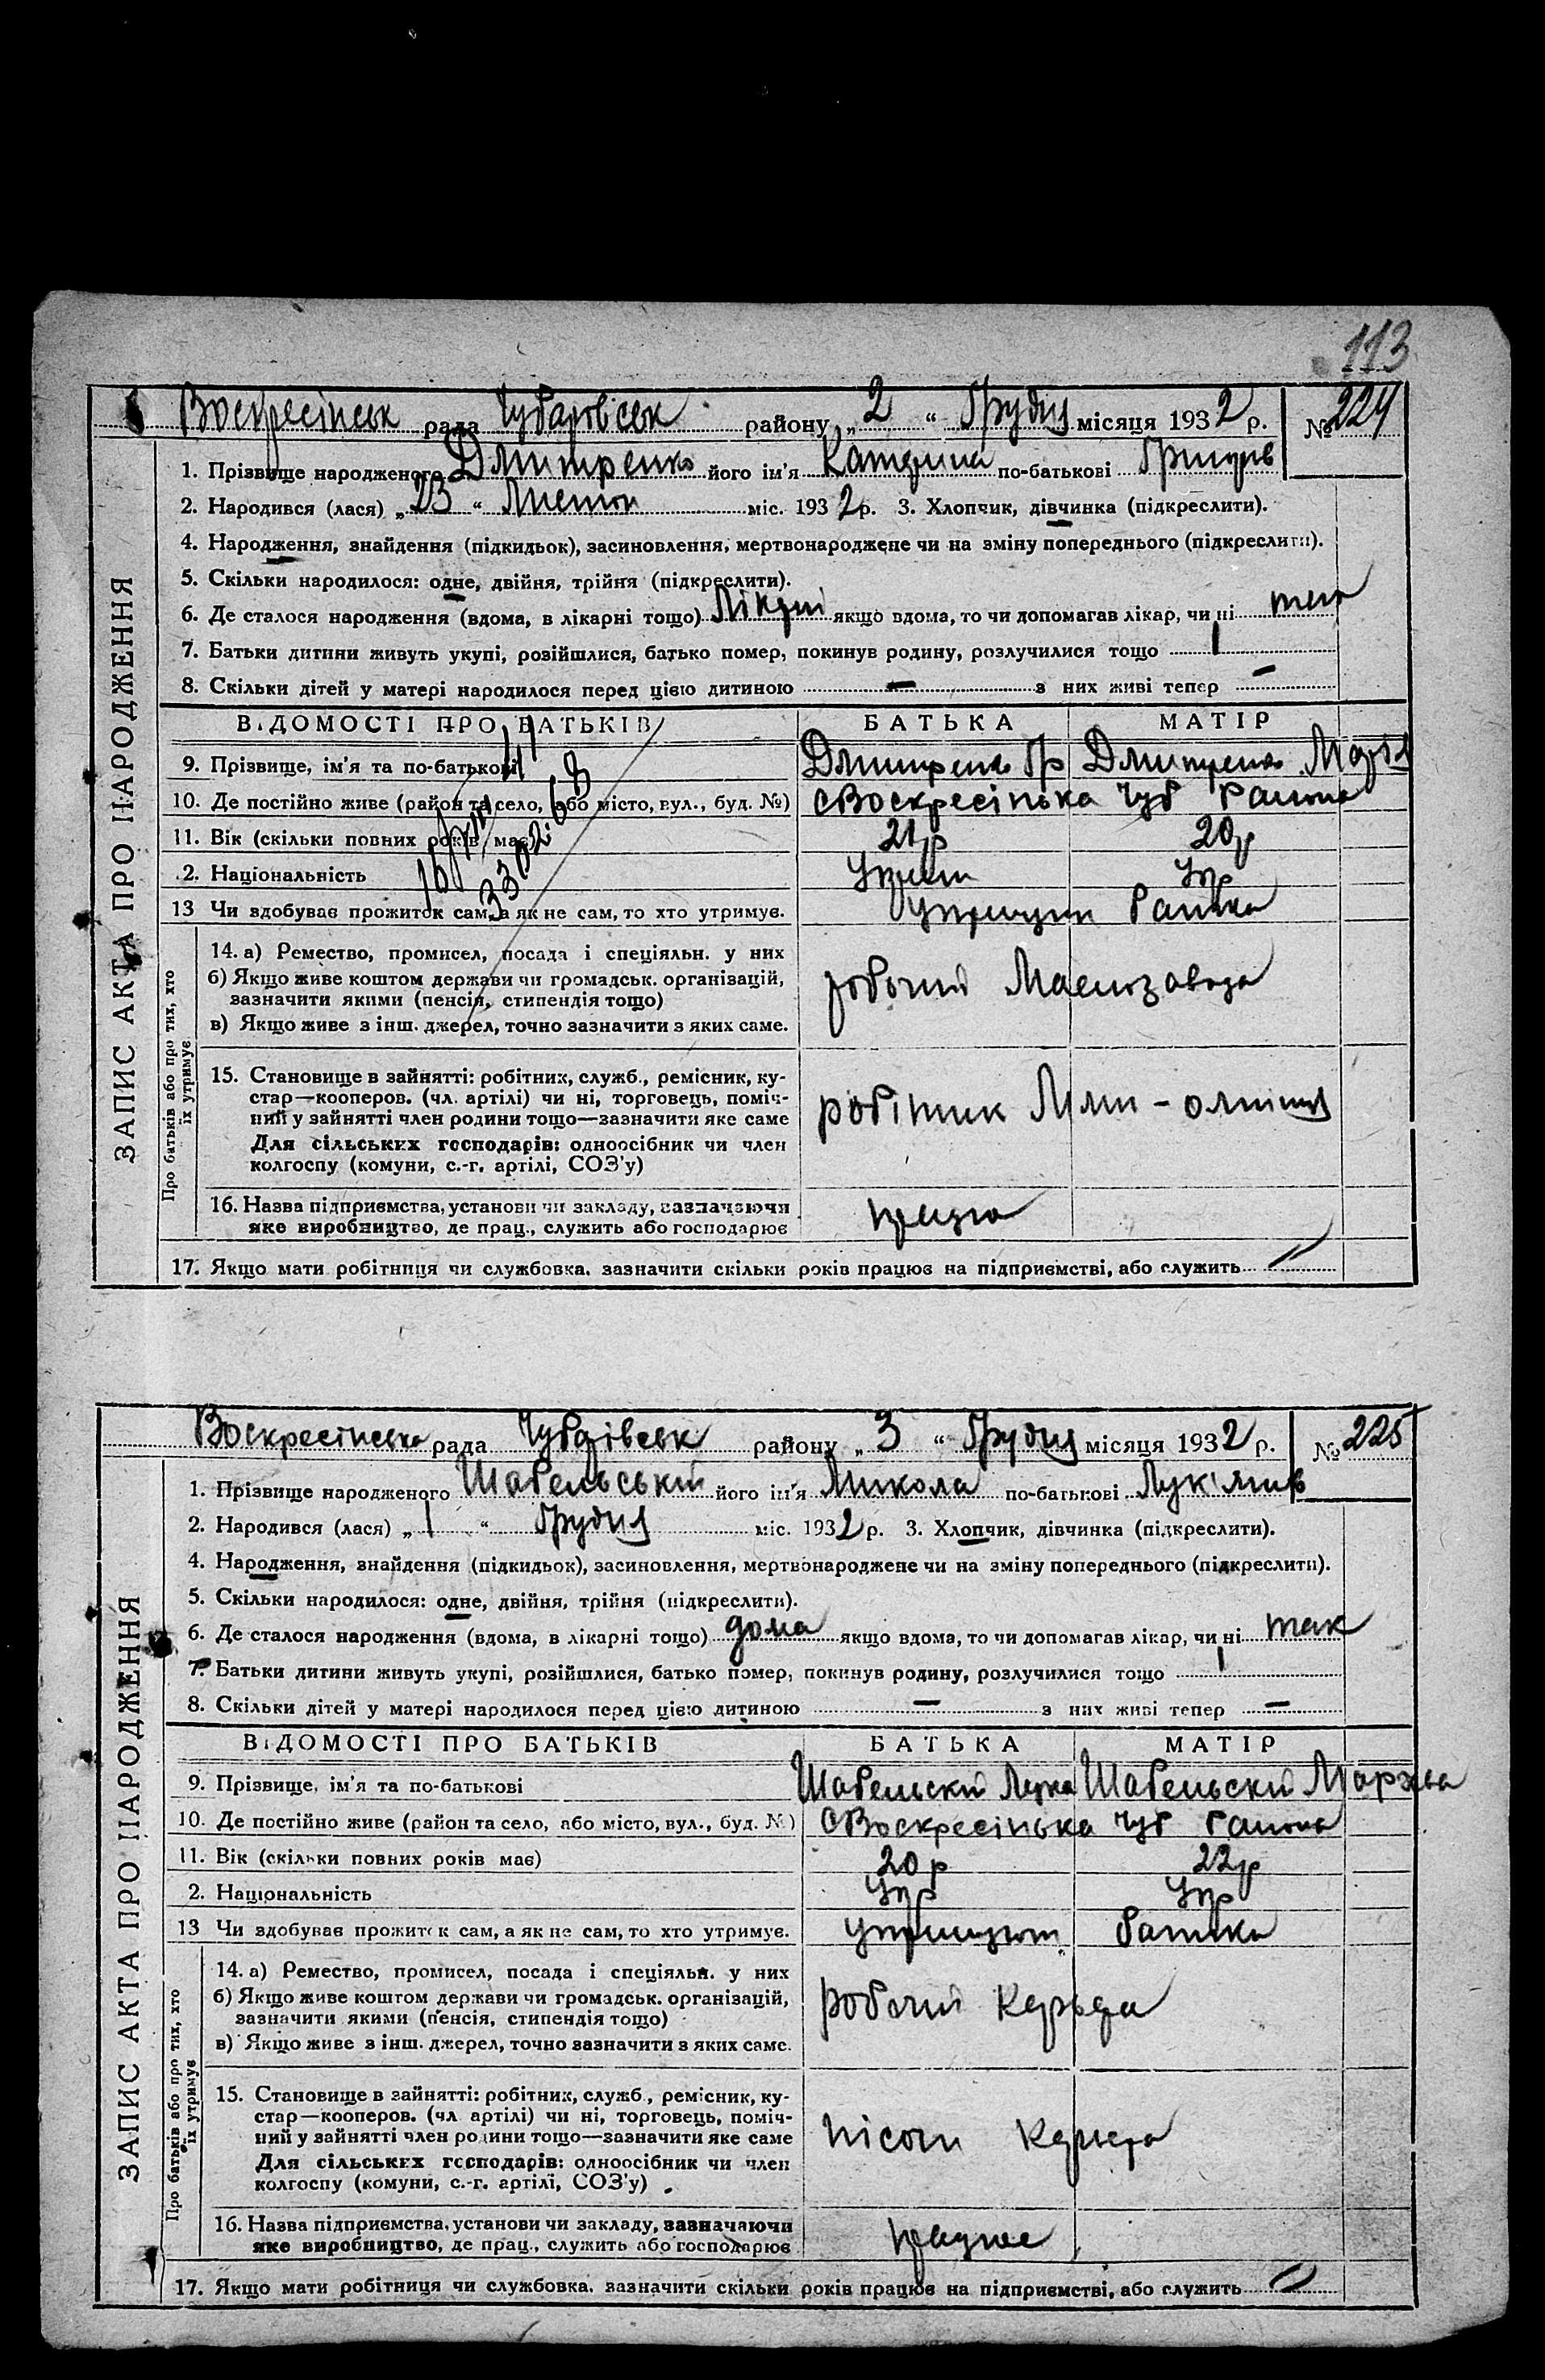 113
Воскресінськ рада Чубарівськ району „ 2 “ Грудня місяця 1932 р. № 224
ЗАПИС АКТА ПРО НАРОДЖЕННЯ
1. Прізвище народженого Дмитренко його ім'я Катерина по-батькові Григорів
2. Народився (лася) „ 23 “ Листоп міс. 1932 р. 3. Хлопчик, дівчинка (підкреслити).
4. Народження, знайдення (підкидьок), засиновлення, мертвонароджене чи на зміну попереднього (підкреслити).
5. Скільки народилося: одне, двійня, трійня (підкреслити).
6. Де сталося народження (вдома, в лікарні тощо) якщо вдома, то чи допомагав лікар, чи ні
7. Батьки дитини живуть укупі, розійшлися, батько помер, покинув родину, розлучилися тощо
8. Скільки дітей у матері народилося перед цією дитиною — з них живі тепер —
ВІДОМОСТІ ПРО БАТЬКІВ БАТЬКА МАТІР
9. Прізвище, ім'я та по-батькові Дмитренко Гр Дмитренко Марія
10. Де постійно живе (район та село, або місто, вул., буд. №) с Воскресінька Чуб Району
11. Вік (скільки повних років має) 21 р 20 р
2. Національність Укр
13 Чи здобуває прожиток сам, а як не сам, то хто утримує. Батька
Про батьків або про тих, хто їх утримує
14. а) Ремество, промисел, посада і спеціяльн. у них
б) Якщо живе коштом держави чи громадськ. організацій,
зазначити якими (пенсія, стипендія тощо)
робочий Маслозавода
в) Якщо живе з інш. джерел, точно зазначити з яких саме.
15. Становище в зайнятті: робітник, служб., ремісник, ку-
стар—кооперов. (чл. артілі) чи ні, торговець, поміч-
ний у зайнятті член родини тощо—зазначити яке саме
робітник
Для сільських господарів: одноосібник чи член
колгоспу (комуни, с.-г. артілі, СОЗ'у)
16. Назва підприємства, установи чи закладу, зазначаючи
яке виробництво, де прац., служить або господарює
17. Якщо мати робітниця чи службовка, зазначити скільки років працює на підприємстві, або служить
Воскресінська рада району „ 3 “ Грудня місяця 1932 р. № 225
ЗАПИС АКТА ПРО НАРОДЖЕННЯ
1. Прізвище народженого Шабельський його ім'я Микола по-батькові Лук'янів
2. Народився (лася) „ 1 “ Грудня міс. 1932 р. 3. Хлопчик, дівчинка (підкреслити).
4. Народження, знайдення (підкидьок), засиновлення, мертвонароджене чи на зміну попереднього (підкреслити).
5. Скільки народилося: одне, двійня, трійня (підкреслити).
6. Де сталося народження (вдома, в лікарні тощо) дома якщо вдома, то чи допомагав лікар, чи ні так
7. Батьки дитини живуть укупі, розійшлися, батько помер, покинув родину, розлучилися тощо
8. Скільки дітей у матері народилося перед цією дитиною — з них живі тепер —
ВІДОМОСТІ ПРО БАТЬКІВ БАТЬКА МАТІР
9. Прізвище, ім'я та по-батькові Шабельский Лука Шабельский
10. Де постійно живе (район та село, або місто, вул., буд. №) с Воскресінька Чуб Району
11. Вік (скільки повних років має) 20 р 22 р
2. Національність Укр Укр
13 Чи здобуває прожиток сам, а як не сам, то хто утримує. батька
Про батьків або про тих, хто їх утримує
14. а) Ремество, промисел, посада і спеціяльн. у них
б) Якщо живе коштом держави чи громадськ. організацій,
зазначити якими (пенсія, стипендія тощо)
робочий
в) Якщо живе з інш. джерел, точно зазначити з яких саме.
15. Становище в зайнятті: робітник, служб., ремісник, ку-
стар—кооперов. (чл. артілі) чи ні, торговець, поміч-
ний у зайнятті член родини тощо—зазначити яке саме
Для сільських господарів: одноосібник чи член
колгоспу (комуни, с.-г. артілі, СОЗ'у)
16. Назва підприємства, установи чи закладу, зазначаючи
яке виробництво, де прац., служить або господарює
17. Якщо мати робітниця чи службовка, зазначити скільки років працює на підприємстві, або служить